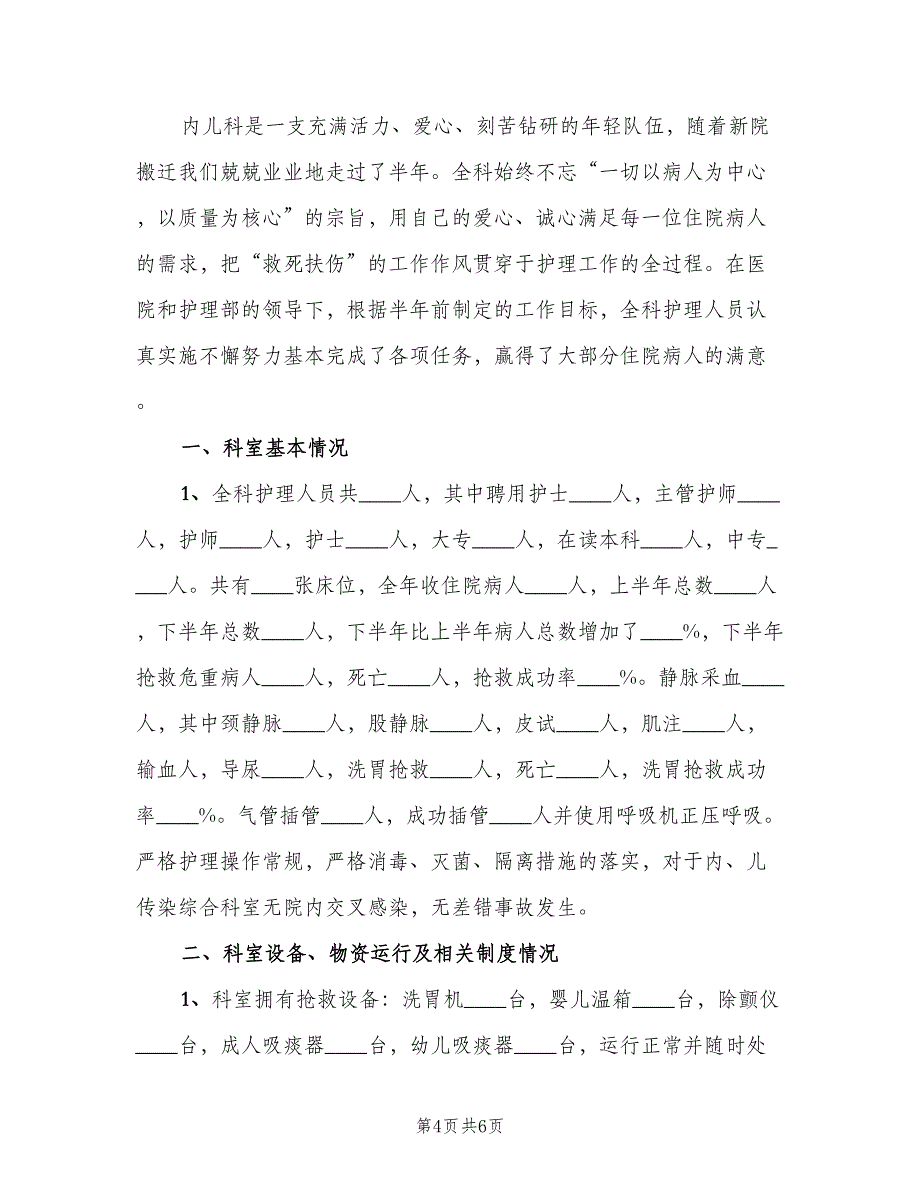 内儿科是一支充满活力、爱心、刻苦钻研的年轻队伍，随着新院
搬迁我们兢兢业业地走过了半年。全科始终不忘“一切以病人为中心
，以质量为核心”的宗旨，用自己的爱心、诚心满足每一位住院病人
的需求，把“救死扶伤”的工作作风贯穿于护理工作的全过程。在医
院和护理部的领导下，根据半年前制定的工作目标，全科护理人员认
真实施不懈努力基本完成了各项任务，赢得了大部分住院病人的满意
。
一、科室基本情况
1、全科护理人员共____人，其中聘用护士____人，主管护师____
人，护师____人，护士____人，大专____人，在读本科____人，中专_
___人。共有____张床位，全年收住院病人____人，上半年总数____人
，下半年总数____人，下半年比上半年病人总数增加了____%，下半年
抢救危重病人____人，死亡____人，抢救成功率____%。静脉采血____
人，其中颈静脉____人，股静脉____人，皮试____人，肌注____人，
输血人，导尿____人，洗胃抢救____人，死亡____人，洗胃抢救成功
率____%。气管插管____人，成功插管____人并使用呼吸机正压呼吸。
严格护理操作常规，严格消毒、灭菌、隔离措施的落实，对于内、儿
传染综合科室无院内交叉感染，无差错事故发生。
二、科室设备、物资运行及相关制度情况
1、科室拥有抢救设备：洗胃机____台，婴儿温箱____台，除颤仪
____台，成人吸痰器____台，幼儿吸痰器____台，运行正常并随时处
第4页 共6页